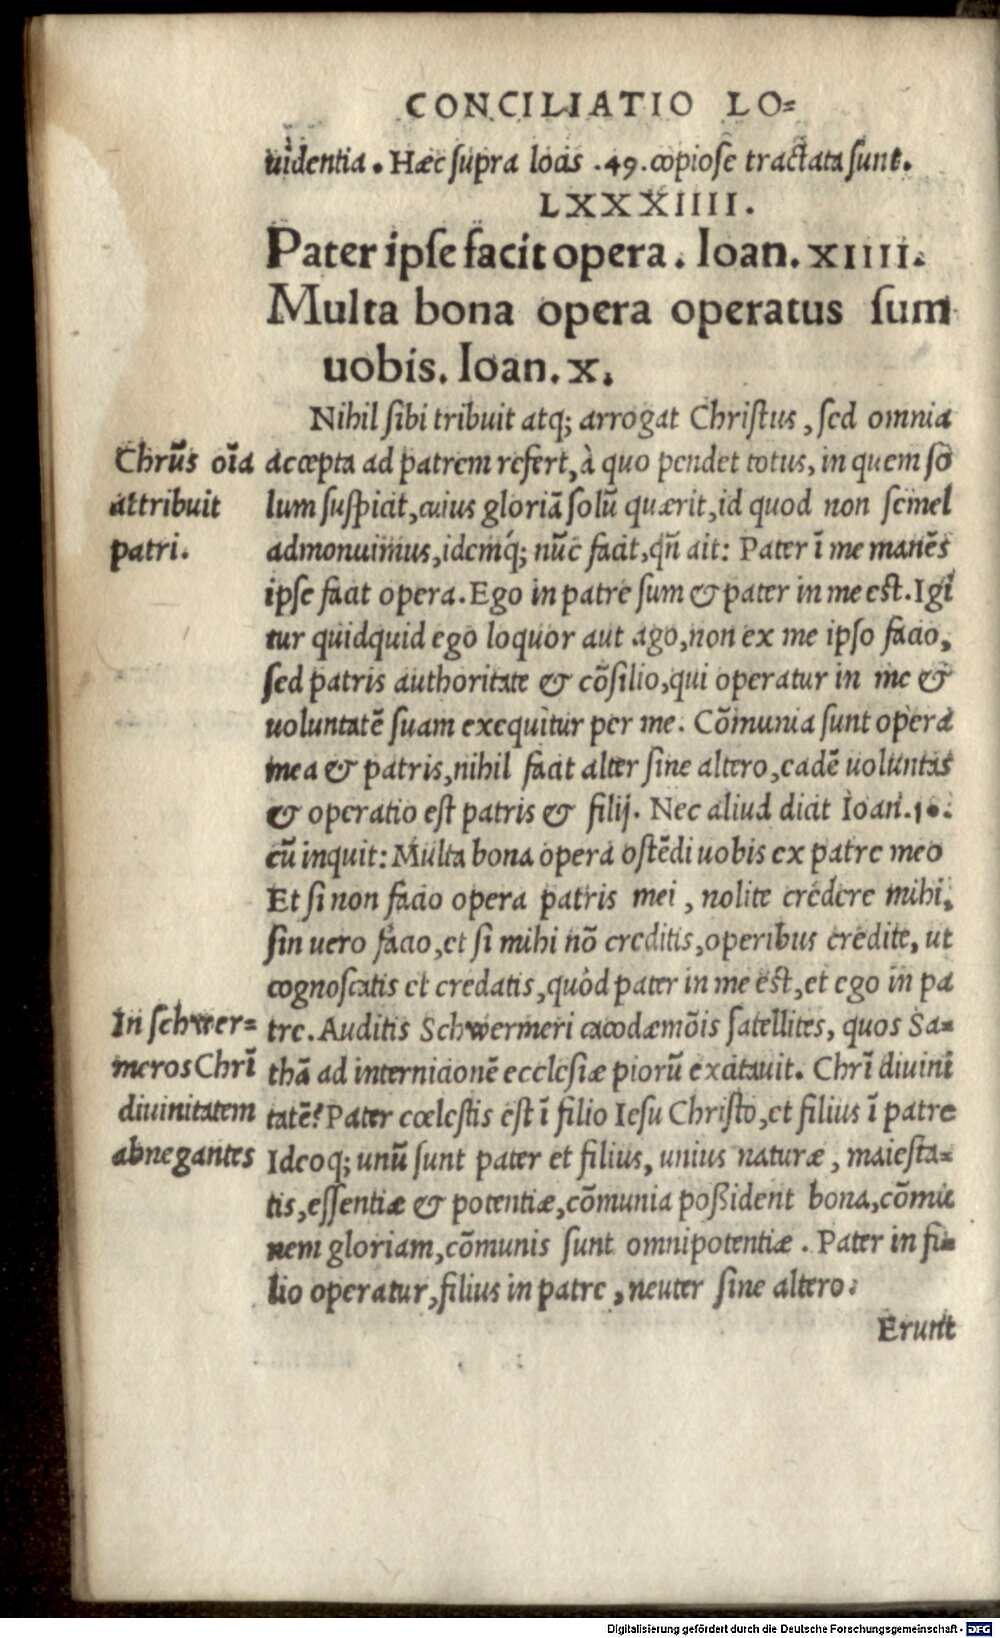 CONCILIATIO LO=
uidentia. Hæc supra locis .49. copiose tractata sunt.
LXXXIIII.
Pater ipse facit opera. Ioan. XIIII.
Multa bona opera operatus sum
uobis. Ioan. X.
Nihil sibi tribuit atq; arrogat Christus, sed omnia
Chrūs oīa
attribuit
patri.
accepta ad patrem refert, à quo pendet totus, in quem so
lum suspicit, cuius gloriā solū quærit, id quod non semel
admonuimus, idemq́; nūc facit, qñ ait: Pater ī me manēs
ipse facit opera. Ego in patre sum & pater in me est. Igi
tur quidquid ego loquor aut ago, non ex me ipso facio,
sed patris authoritate & cōsilio, qui operatur in me &
uoluntatē suam exequitur per me. Cōmunia sunt opera
mea & patris, nihil facit alter sine altero, eadē uoluntas
& operatio est patris & filij. Nec aliud dicit Ioan. 10.
cū inquit: Multa bona opera ostēdi uobis ex patre meo
Et si non facio opera patris mei, nolite credere mihi,
sin uero facio, et si mihi nō creditis, operibus credite, ut
cognoscatis et credatis, quòd pater in me est, et ego in pa
In schwer=
meros Chrī
diuinitatem
abnegantes
tre. Auditis Schwermeri cacodæmōis satellites, quos Sa=
thā ad internicionē ecclesiæ piorū excitauit. Chrī diuini
tatē? Pater cœlestis est ī filio Iesu Christo, et filius ī patre
Ideoq; unū sunt pater et filius, unius naturæ, maiesta=
tis, essentiæ & potentiæ, cōmunia poßident bona, cōmu
nem gloriam, cōmunis sunt omnipotentiæ. Pater in fi=
lio operatur, filius in patre, neuter sine altero.
Erunt
Digitalisierung gefördert durch die Deutsche Forschungsgemeinschaft - DFG